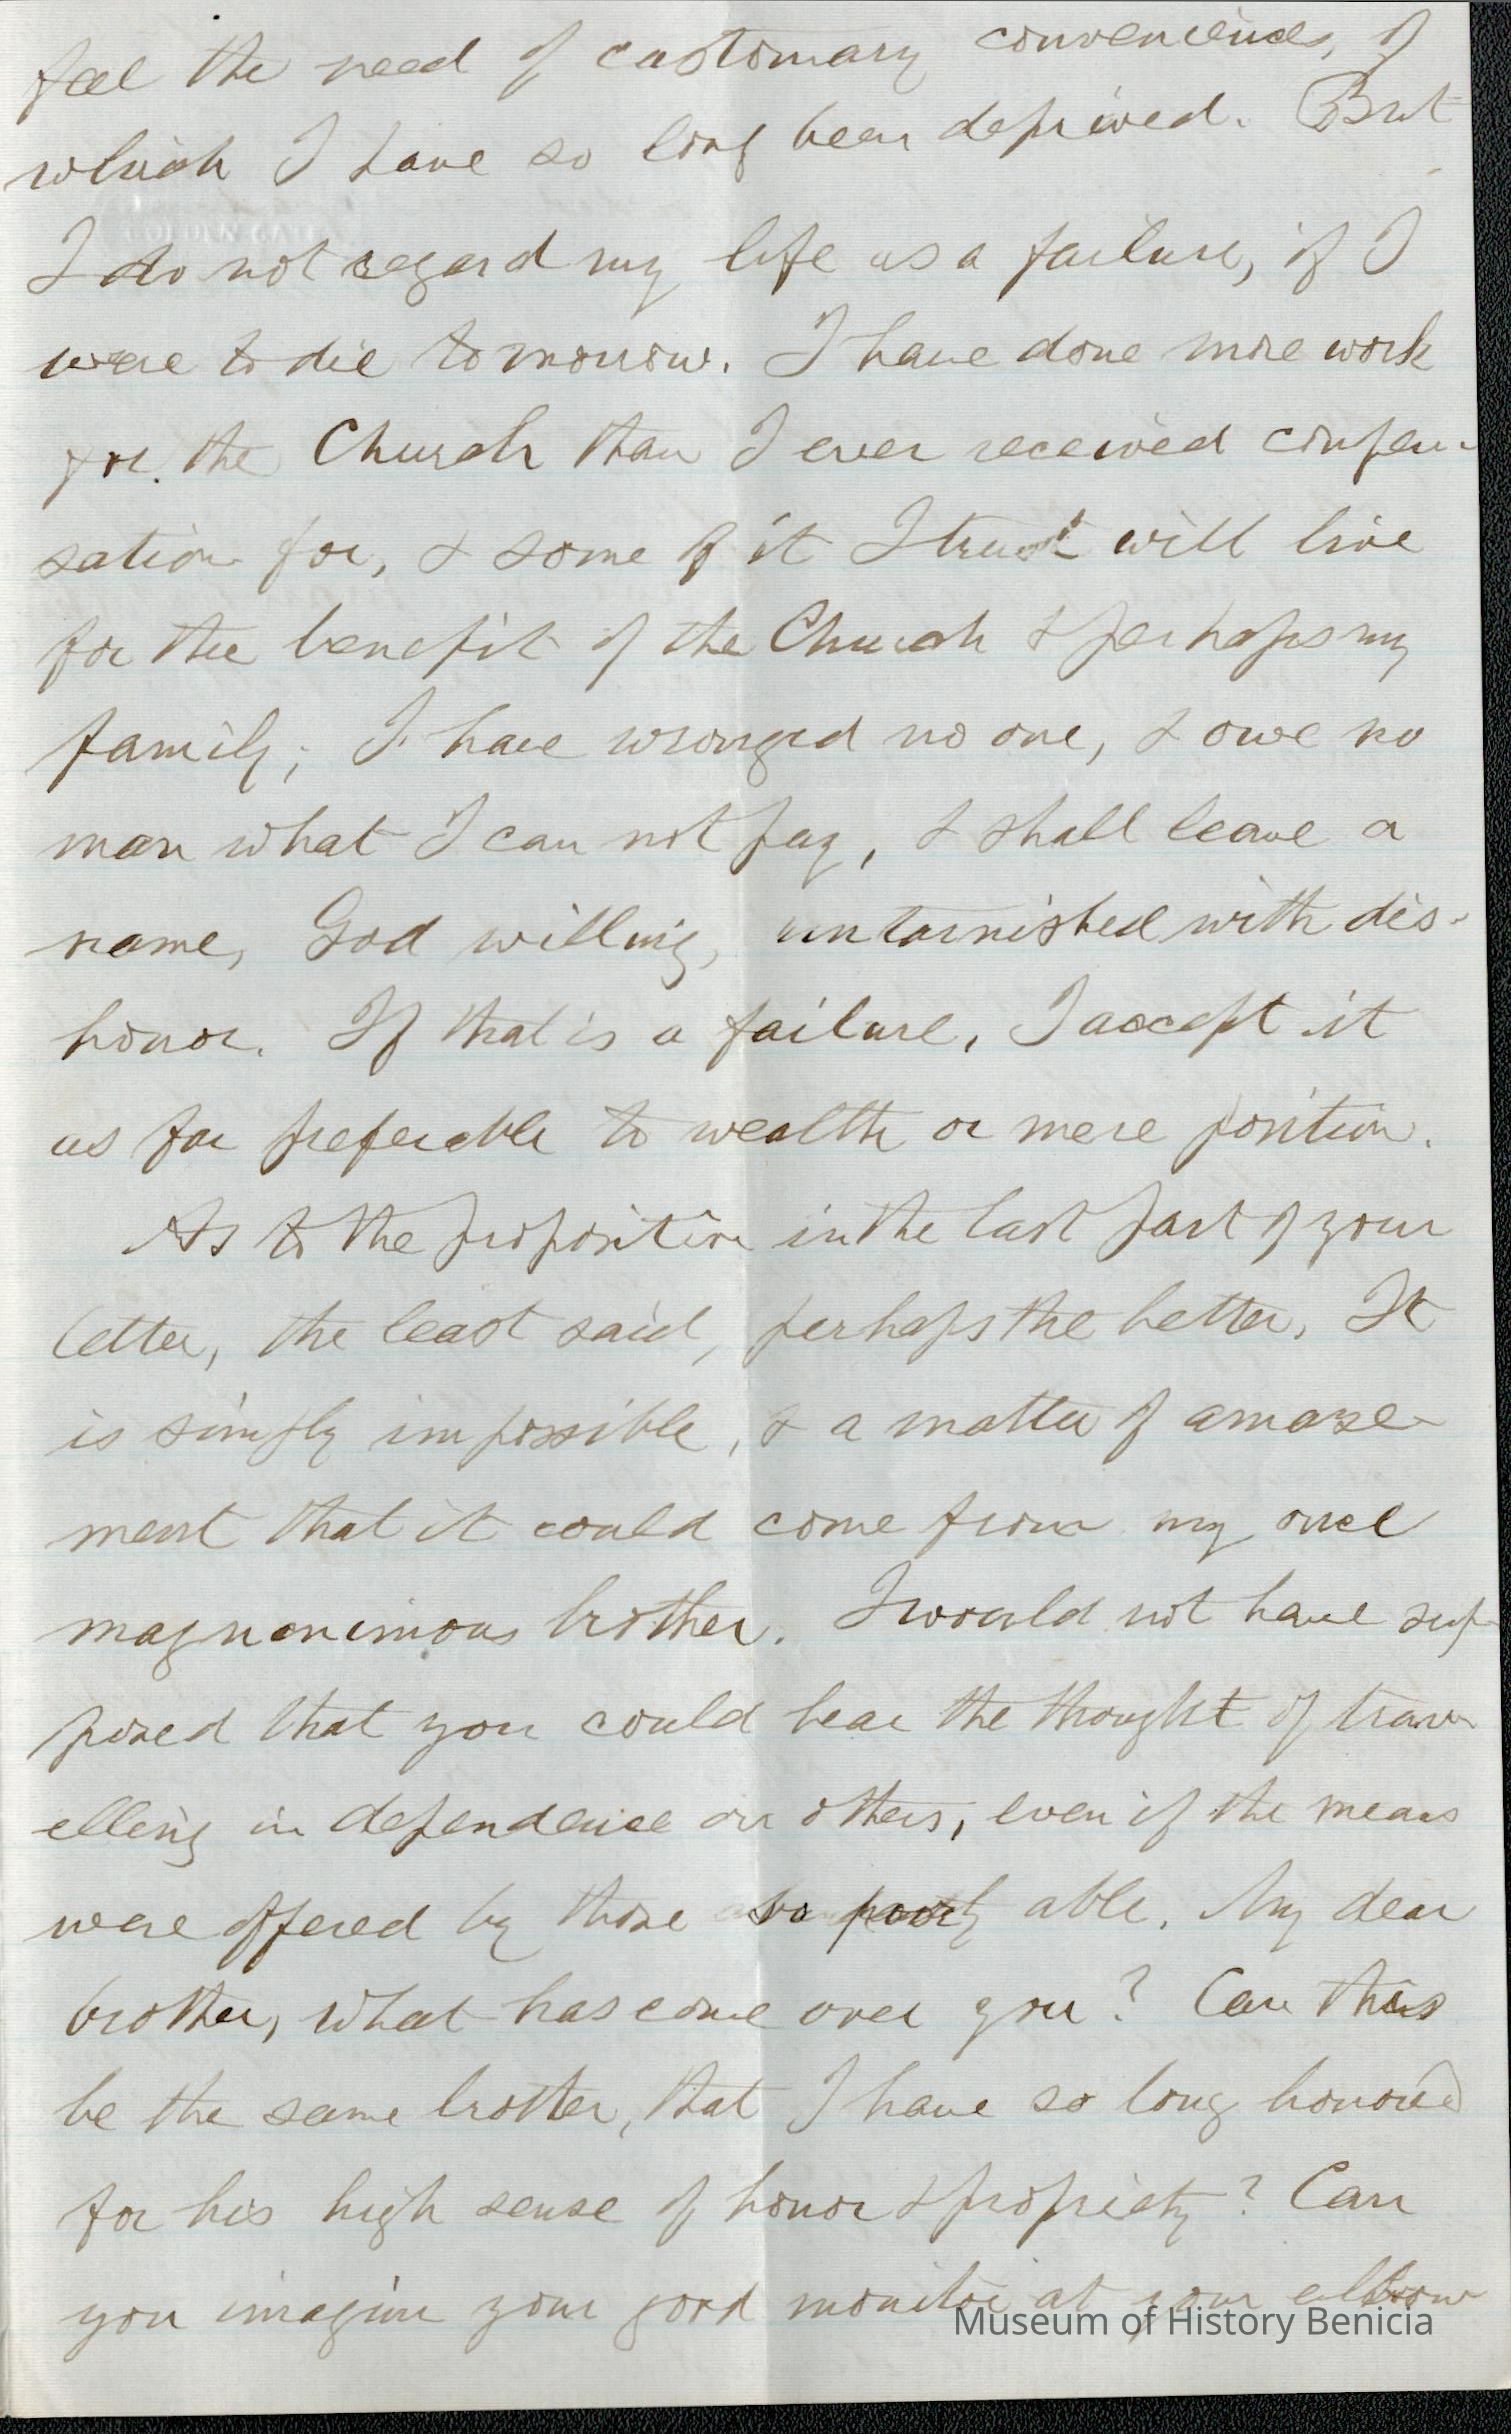 feel the need of customary conveniences, of
which I have so long been deprived. But
GOLDEN GATE
I do not regard my life as a failure, if I
were to die tomorrow. I have done more work
for the Church than I ever received compen-
sation for, & some of it I trust will live
for the benefit of the Church & perhaps my
family; I have wronged no one, & owe no
man what I can not pay, & shall leave a
name, God willing, untarnished with dis-
honor. If that is a failure, I accept it
as far preferable to wealth or mere position.
As to the proposition in the last part of your
letter, the least said, perhaps the better. It
is simply impossible, & a matter of amaze-
ment that it could come from my once
magnanimous brother. I would not have sup-
posed that you could bear the thought of trav-
elling in dependence on others, even if the means
were offered by those so poorly able. My dear
brother, what has come over you? Can this
be the same brother, that I have so long honored
for his high sense of honor & propriety? Can
you imagine your good monitor at your elbow
Museum of History Benicia